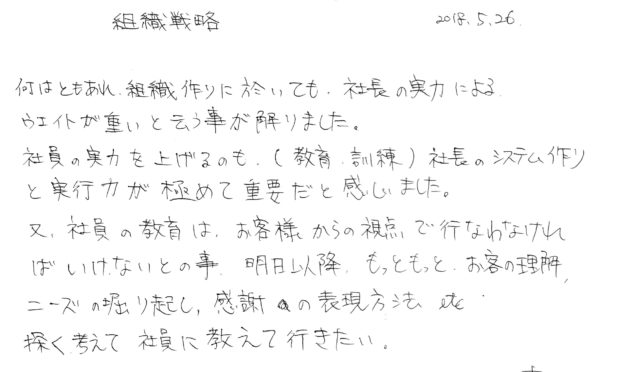 組織戦略 2018.5.26
何はともあれ、組織作りに於いても、社長の実力による
ウエイトが重いと云う事が解りました。
社員の実力を上げるのも、(教育、訓練)社長のシステム作り
と実行力が極めて重要だと感じました。
又、社員の教育は、お客様からの視点で行なわなければ
ばいけないとの事、明日以降、もっともっと、お客の理解、
ニーズの堀り起し、感謝の表現方法 etc
深く考えて社員に教えて行きたい。